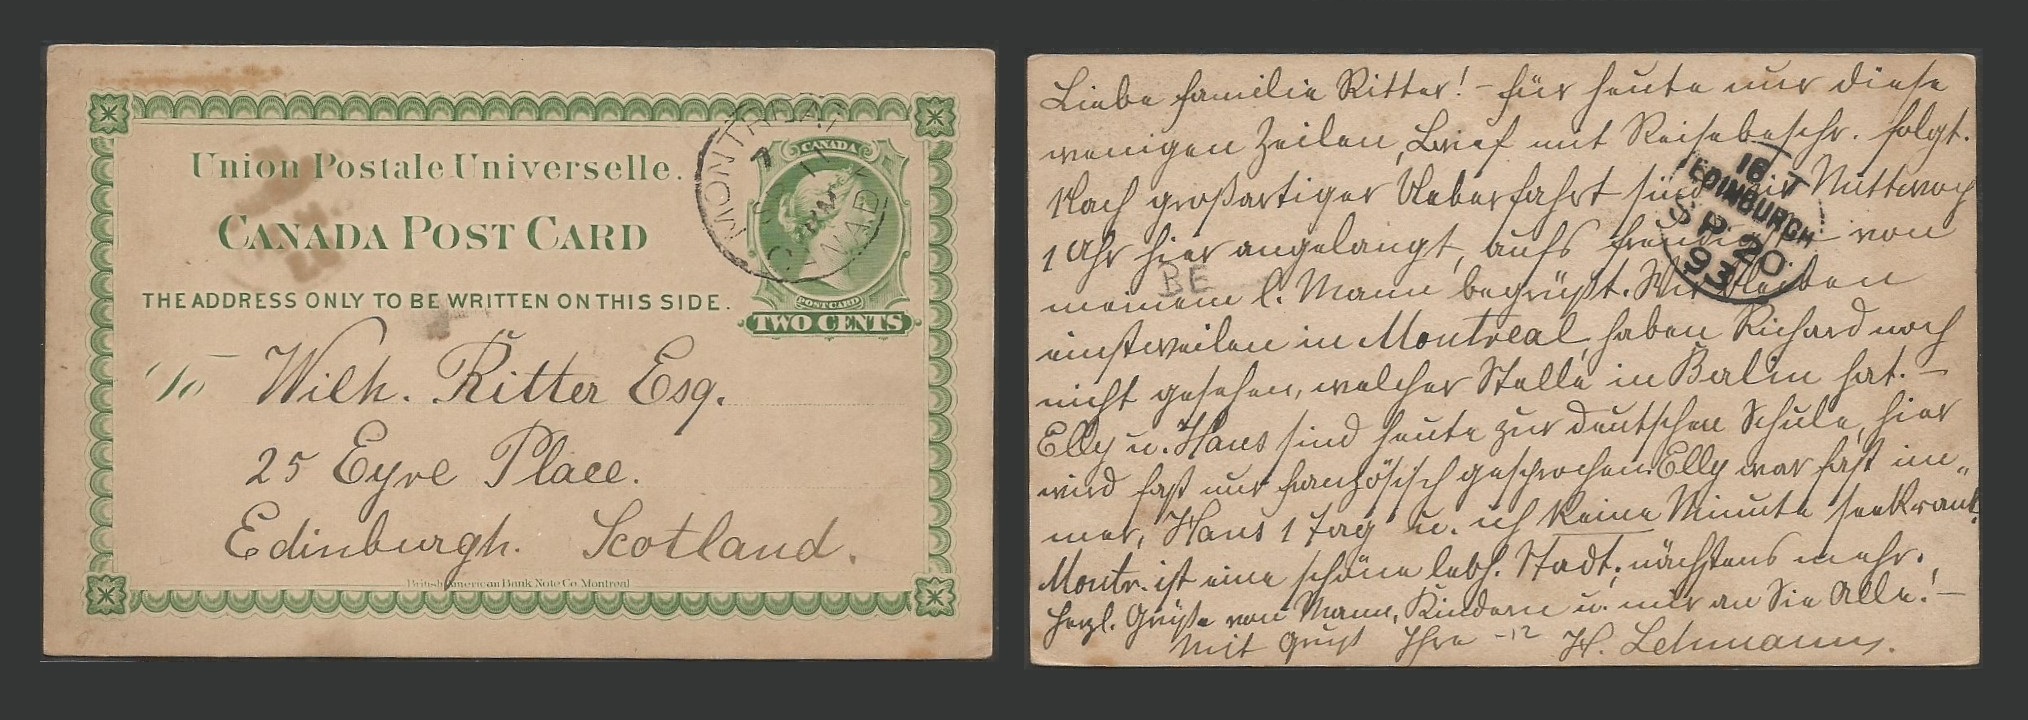 Union Postale Universelle.
CANADA POST CARD
THE ADDRESS ONLY TO BE WRITTEN ON THIS SIDE.
CANADA
POST CARD
TWO CENTS
MONTREAL
7
11
CANADA
To
Wilh. Ritter Esq.
25 Eyre Place.
Edinburgh. Scotland.
British American Bank Note Co. Montreal
Liebe Familie Ritter! – Für heute nur diese
wenigen Zeilen, Brief mit Reisebeschr. folgt.
Nach großartiger Ueberfahrt sind wir Mittwoch
1 Uhr hier angelangt, aufs freudigste von
meinem l. Mann begrüßt. Wir bleiben
einstweilen in Montreal, haben Richard noch
nicht gesehen, welcher Stelle in Berlin hat. –
Elly u. Hans sind heute zur deutschen Schule, hier
wird fast nur französisch gesprochen. Elly war fast im„
mer, Hans 1 Tag u. ich keine Minute seekrank.
Montr. ist eine schöne lebh. Stadt; nächstens mehr.
Herzl. Grüße von Mann, Kindern u. mir an Sie Alle! –
Mit Gruß Ihre H. Lehmann.
16 T
EDINBURGH
SP 20
93
BE